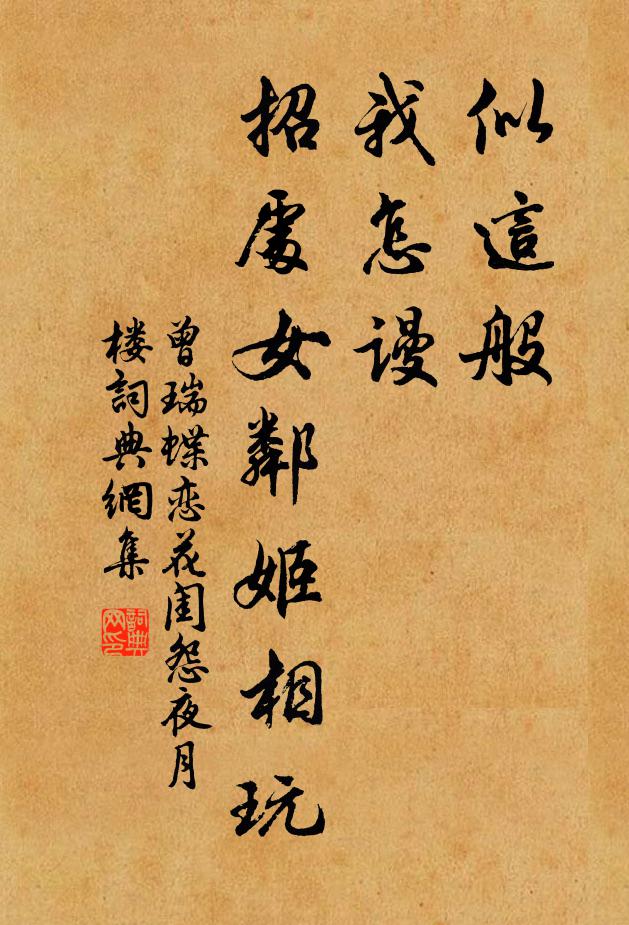 似這般
我怎謾
招處女鄰姬相玩
曾瑞蝶恋花闺怨夜月
楼詞典網集
詞典网印